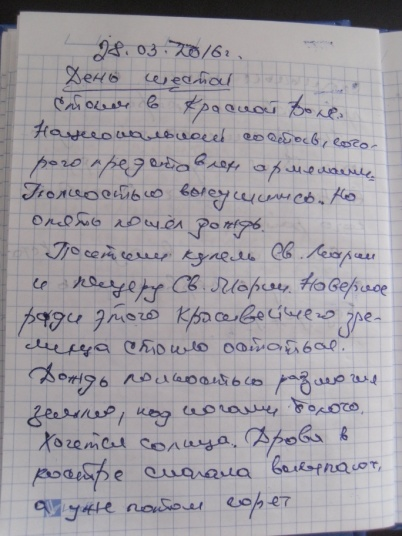 28.03.2016г.
День шестой
Стоим в Красной Воле.
Национальный состав, кото-
рого представлен армянами.
Полностью высушились. Но
опять пошёл дождь.
Посетили купель Св. Марии
и пещеру Св. Марии. Наверное
ради этого красивейшего зре-
лища стоило остаться.
Дождь полностью размочил
землю, под ногами болото.
Хочется солнца. Дрова в
костре сначала выкипают,
а уже потом горят